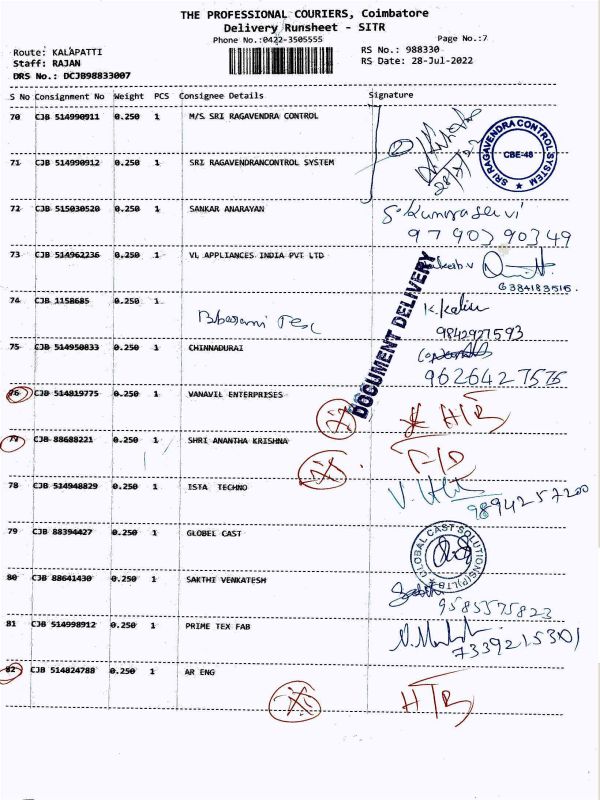 THE PROFESSIONAL COURIERS, Coimbatore
Delivery Runsheet - SITR
Phone No.:0422-3505555 Page No.:7
Route: KALAPATTI RS No.: 988330
Staff: RAJAN RS Date: 28-Jul-2022
DRS No.: DCJB98833007
S No Consignment No Weight PCS Consignee Details Signature
70 CJB 514990911 0.250 1 M/S SRI RAGAVENDRA CONTROL
SRI RAGAVENDRA CONTROL SYSTEM
CBE-48
71 CJB 514990912 0.250 1 SRI RAGAVENDRANCONTROL SYSTEM
72 CJB 515030520 0.250 1 SANKAR ANARAYAN
9790390349
73 CJB 514962236 0.250 1 VL APPLIANCES INDIA PVT LTD
6384183515
DOCUMENT DELIVERY
74 CJB 1158685 0.250 1
9842927593
75 CJB 514950833 0.250 1 CHINNADURAI
9626427575
76 CJB 514819775 0.250 1 VANAVIL ENTERPRISES
77 CJB 88688221 0.250 1 SHRI ANANTHA KRISHNA
78 CJB 514948829 0.250 1 ISTA TECHNO
9894257200
79 CJB 88394427 0.250 1 GLOBEL CAST
GLOBAL CAST SOLUTIONS(P)LTD
80 CJB 88641430 0.250 1 SAKTHI VENKATESH
9585575823
81 CJB 514998912 0.250 1 PRIME TEX FAB
7339215301
82 CJB 514824788 0.250 1 AR ENG